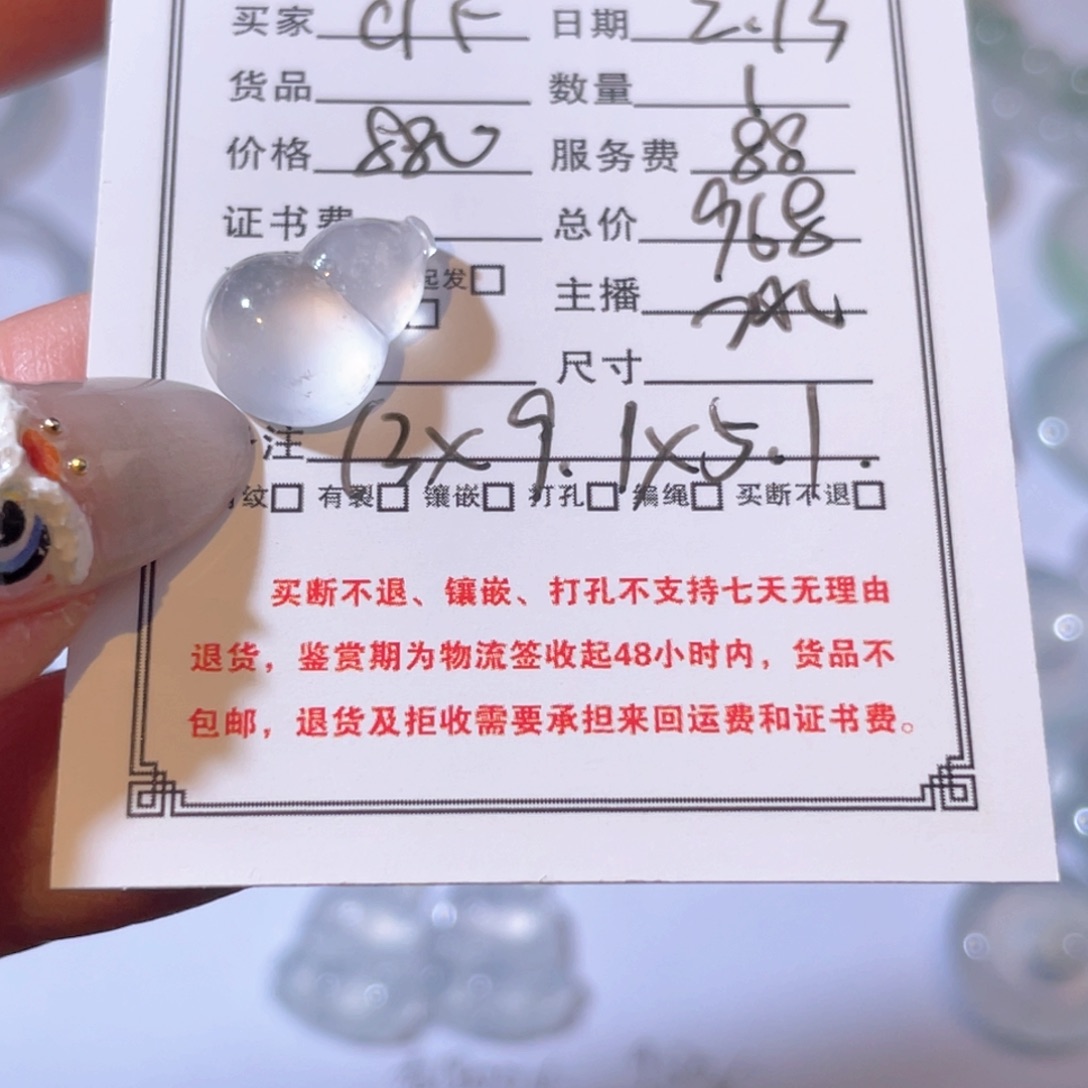 买家 日期 2.13
货品 数量 1
价格 880 服务费 88
证书费 总价 968
起发□ 主播
尺寸
注 13×9.1×5.1.
纹□ 有裂□ 镶嵌□ 打孔□ 编绳□ 买断不退□
买断不退、镶嵌、打孔不支持七天无理由
退货，鉴赏期为物流签收起48小时内，货品不
包邮，退货及拒收需要承担来回运费和证书费。